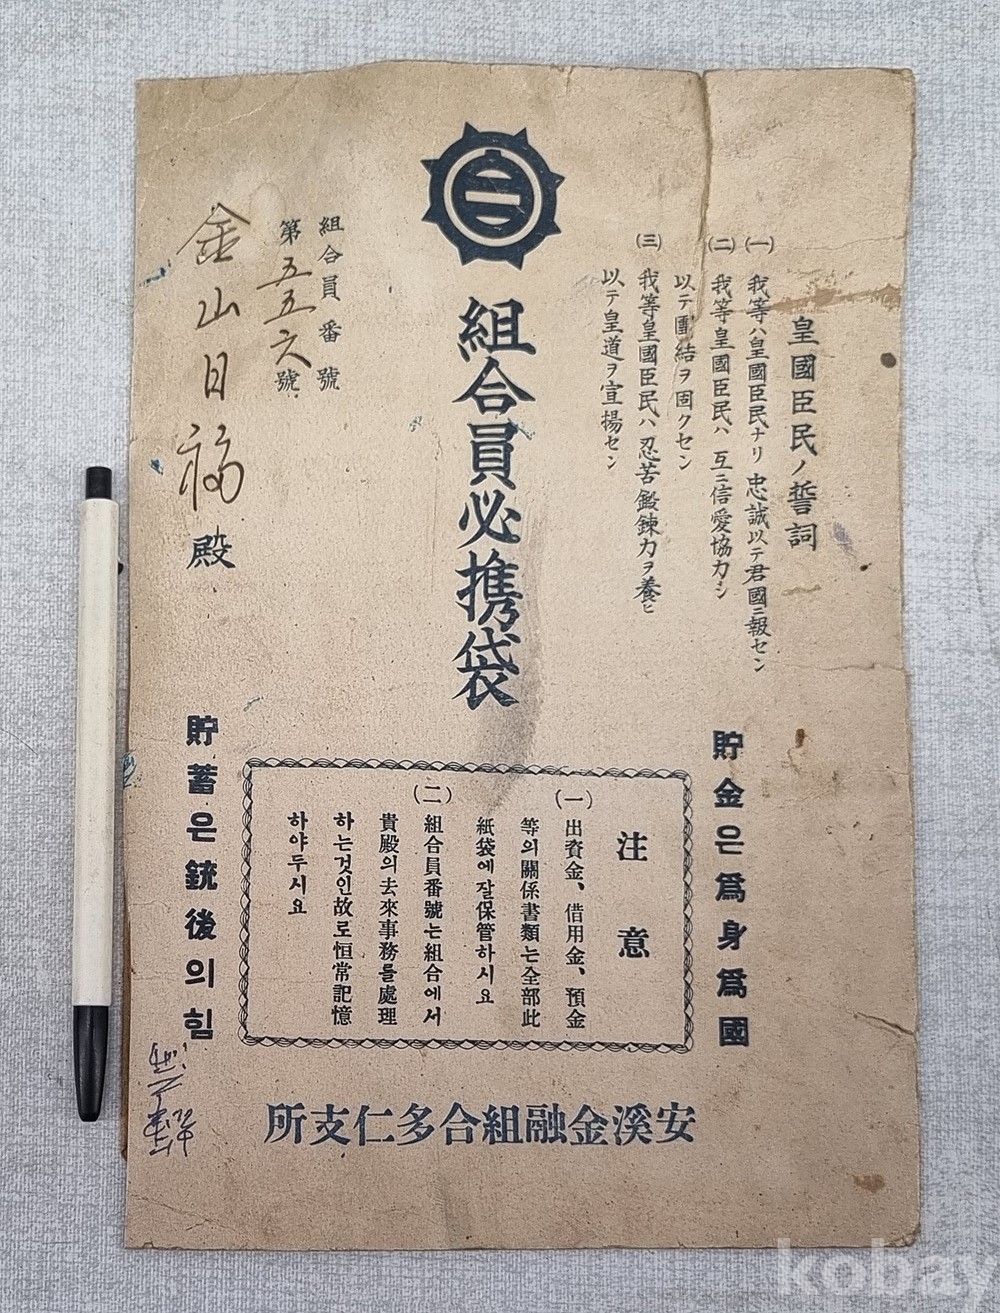 皇國臣民ノ誓詞
(一) 我等ハ皇國臣民ナリ 忠誠以テ君國ニ報セン
(二) 我等皇國臣民ハ 互ニ信愛協力シ
以テ團結ヲ固クセン
(三) 我等皇國臣民ハ 忍苦鍛錬力ヲ養ヒ
以テ皇道ヲ宣揚セン
組合員必携袋
組合員番號
第五五六號
金山日福殿
貯金은爲身爲國
注意
(一) 出資金、借用金、預金
等의關係書類는全部此
紙袋에잘保管하시요
(二) 組合員番號는組合에서
貴殿의去來事務를處理
하는것인故로恒常記憶
하야두시요
貯蓄은銃後의힘
所支仁多合組融金溪安
kobay